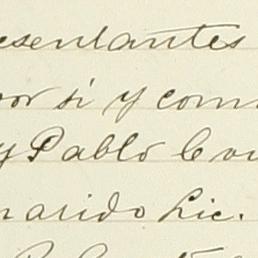 esentantes
por si y com
y Pablo
marido Lic.